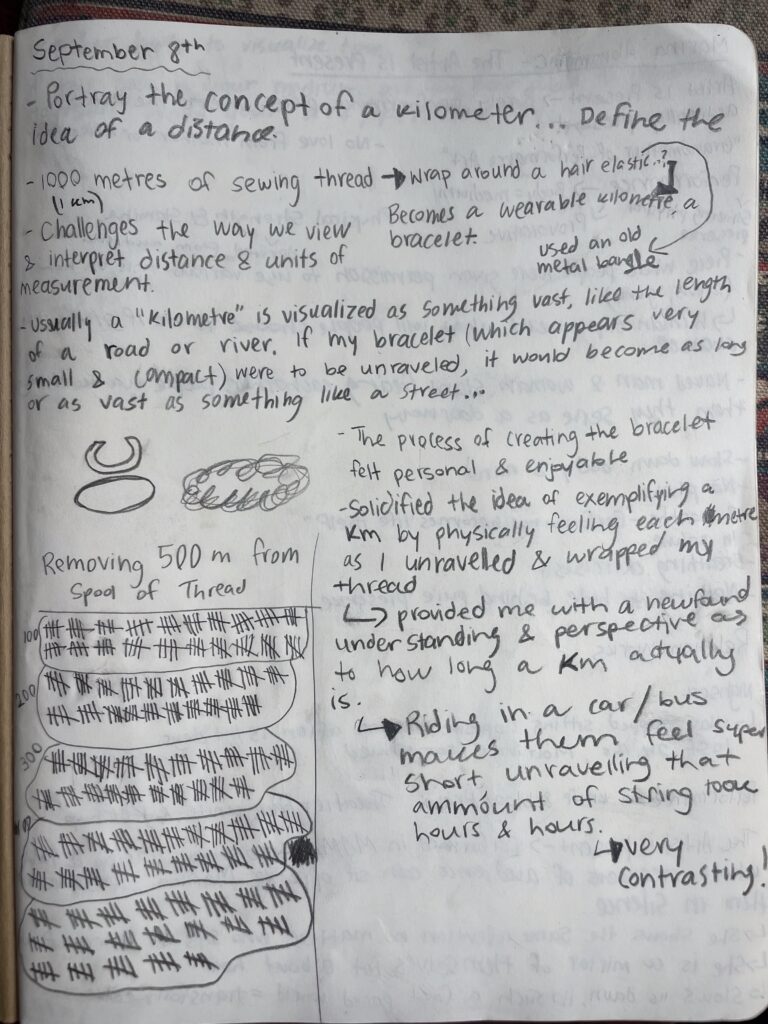 September 8th
- Portray the concept of a kilometer... Define the
idea of a distance.
- 1000 metres of sewing thread → Wrap around a hair elastic..?
(1 km)
Becomes a wearable kilometre, a
bracelet.
used an old
metal bangle
- Challenges the way we view
& interpret distance & units of
measurement.
- usually a "kilometre" is visualized as something vast, like the length
of a road or river. If my bracelet (which appears very
small & compact) were to be unraveled, it would become as long
or as vast as something like a street...
- The process of creating the bracelet
felt personal & enjoyable
- Solidified the idea of exemplifying a
Km by physically feeling each metre
as I unraveled & wrapped my
thread
↳ provided me with a newfound
understanding & perspective as
to how long a Km actually
is.
↳ Riding in a car/bus
makes them feel super
short unravelling that
ammount of string took
hours & hours.
↳ very
contrasting!
Removing 500 m from
Spool of Thread
100
200
300
400